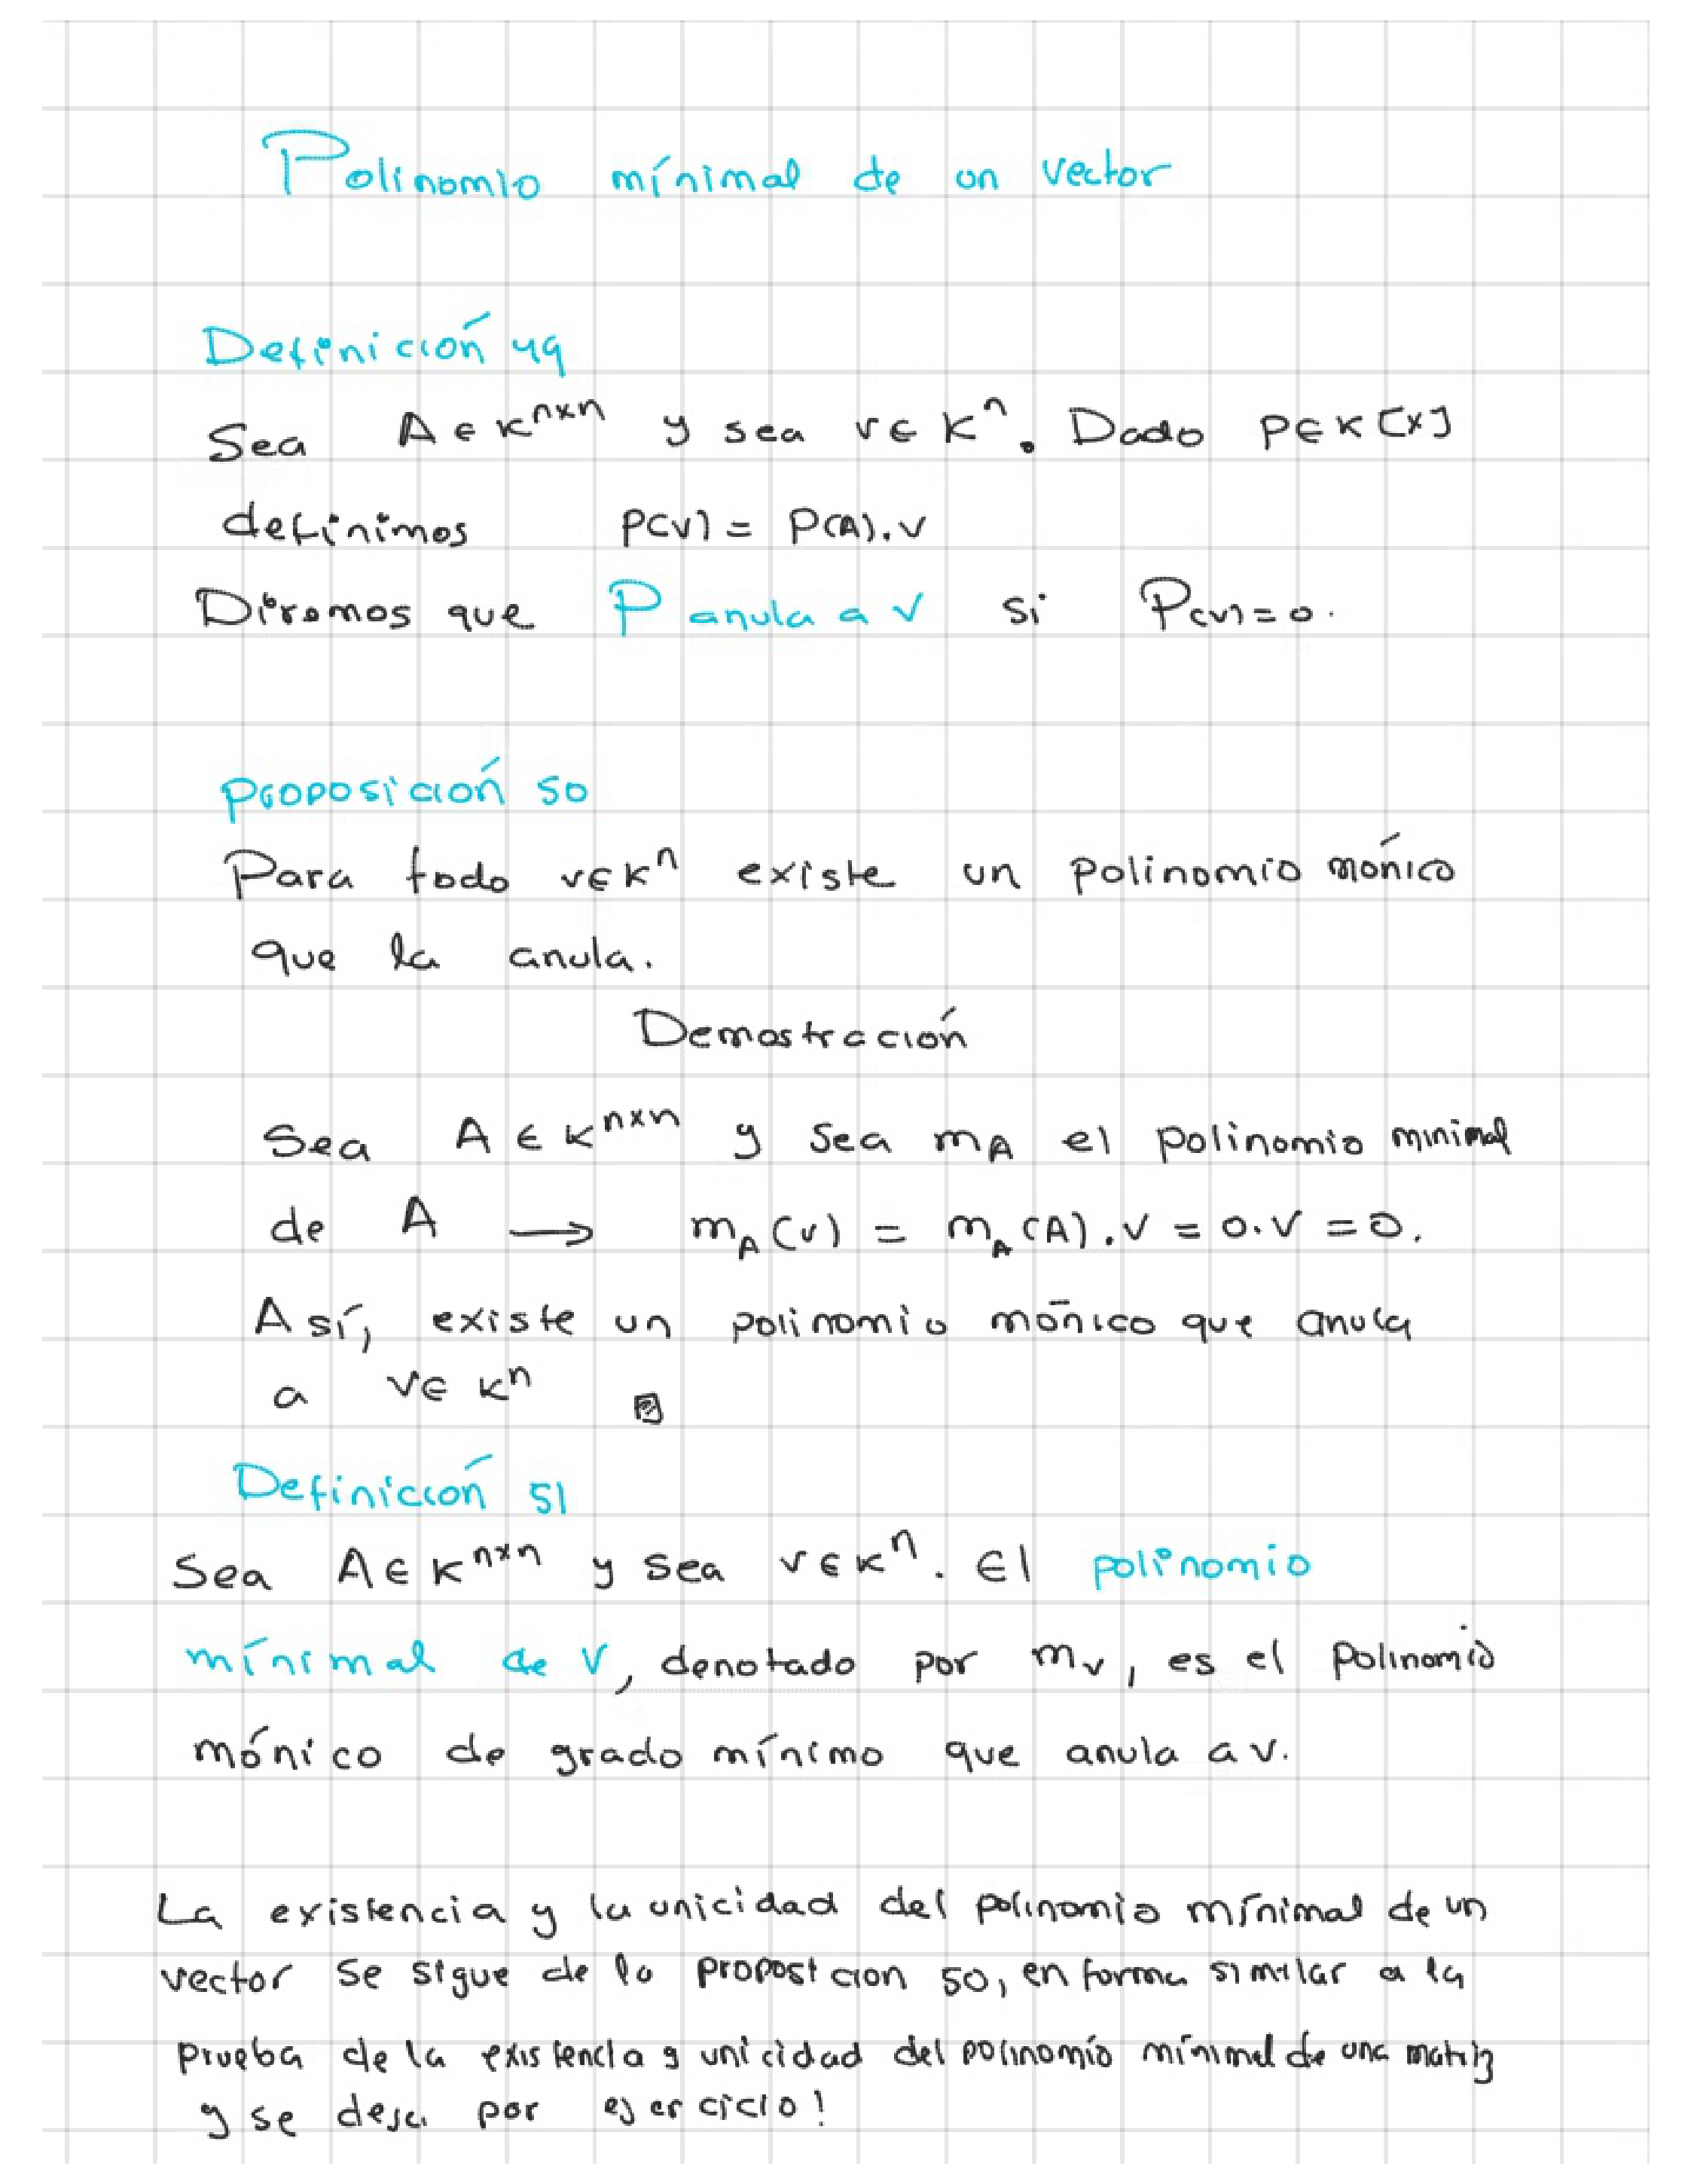 Polinomio mínimal de un vector
Definición 49
Sea A ∈ K^{n×n} y sea v ∈ K^n. Dado P ∈ K[X]
definimos P(v) = P(A).v
Diremos que P anula a v si P(v) = 0.
Proposición 50
Para todo v ∈ K^n existe un polinomio mónico
que la anula.
Demostración
Sea A ∈ K^{n×n} y sea m_A el polinomio minimal
de A → m_A(v) = m_A(A).v = 0.v = 0.
Así, existe un polinomio mónico que anula
a v ∈ K^n
Definición 51
Sea A ∈ K^{n×n} y sea v ∈ K^n. El polinomio
mínimal de v, denotado por m_v, es el polinomio
mónico de grado mínimo que anula a v.
La existencia y la unicidad del polinomio mínimal de un
vector se sigue de la proposicion 50, en forma similar a la
prueba de la existencia y unicidad del polinomio mínimal de una matriz
y se deja por ejercicio!